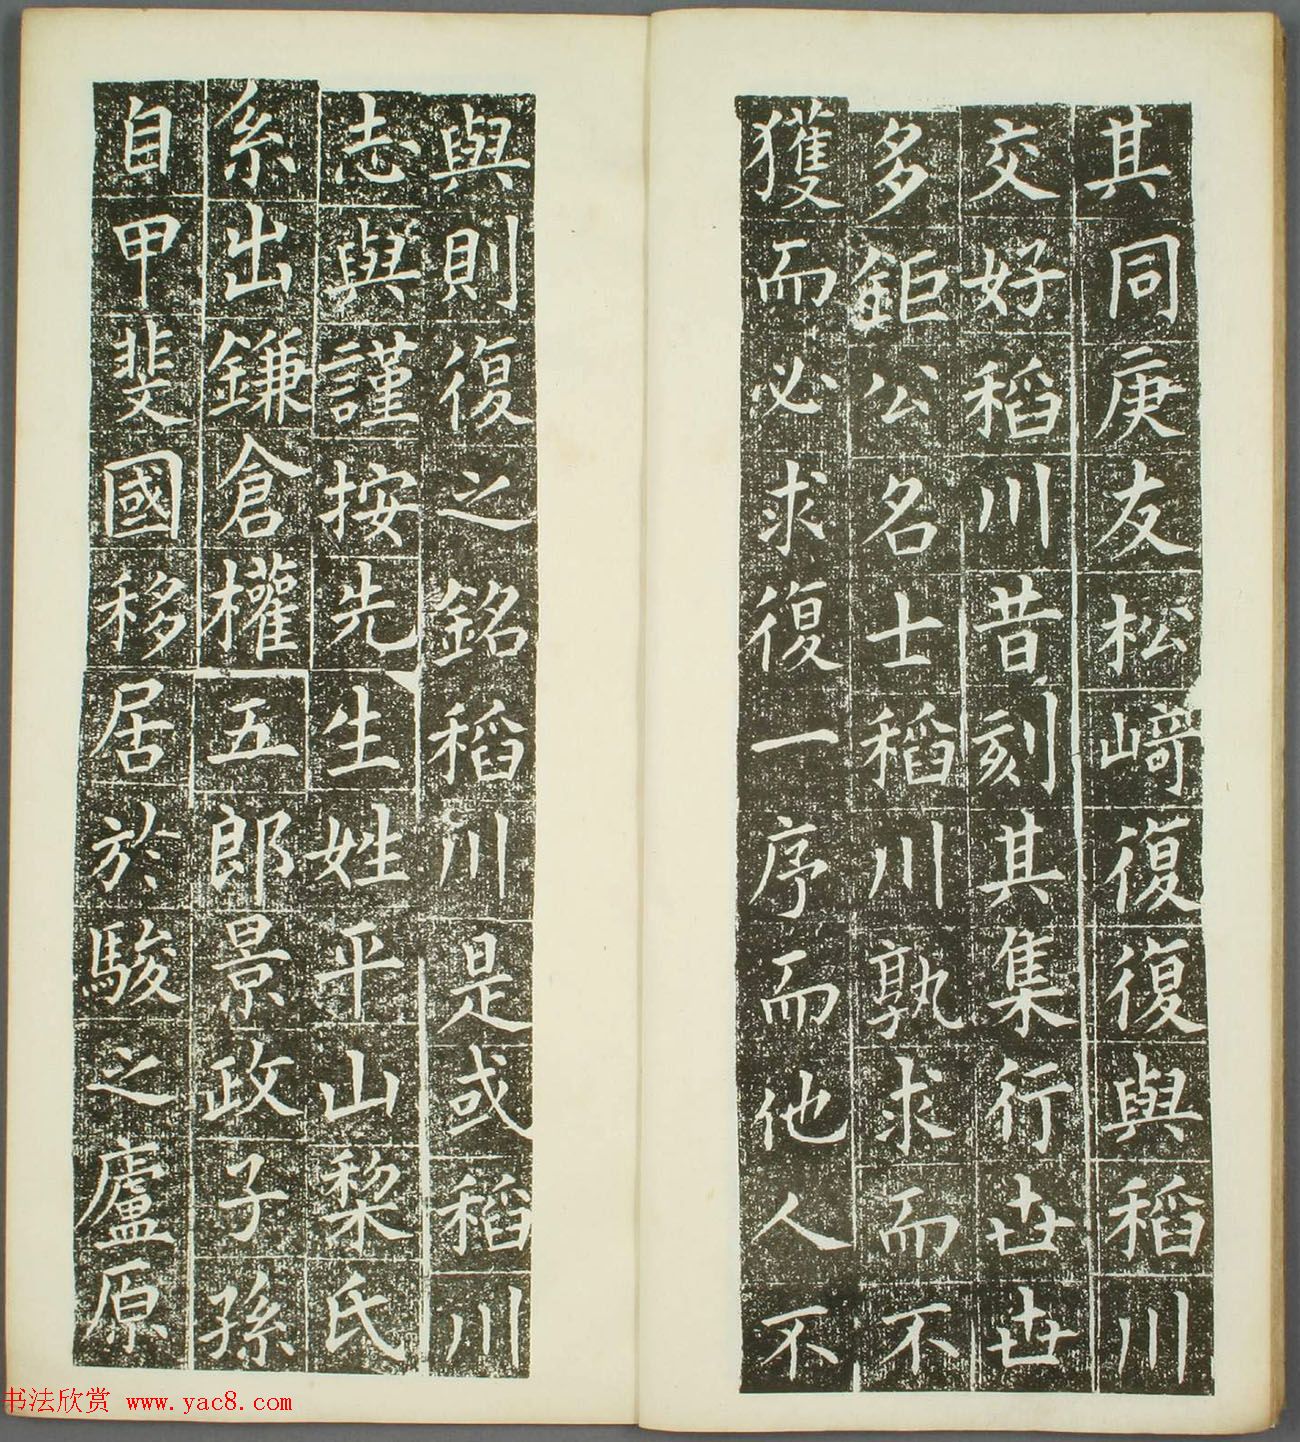 其同庚友松﨑復復與稻川
交好稻川昔刻其集行世世
多鉅公名士稻川孰求而不
獲而必求復一序而他人不
與則復之銘稻川是或稻川
志與謹按先生姓平山梨氏
系出鎌倉權五郎景政子孫
自甲斐國移居於駿之廬原
书法欣赏 www.yac8.com